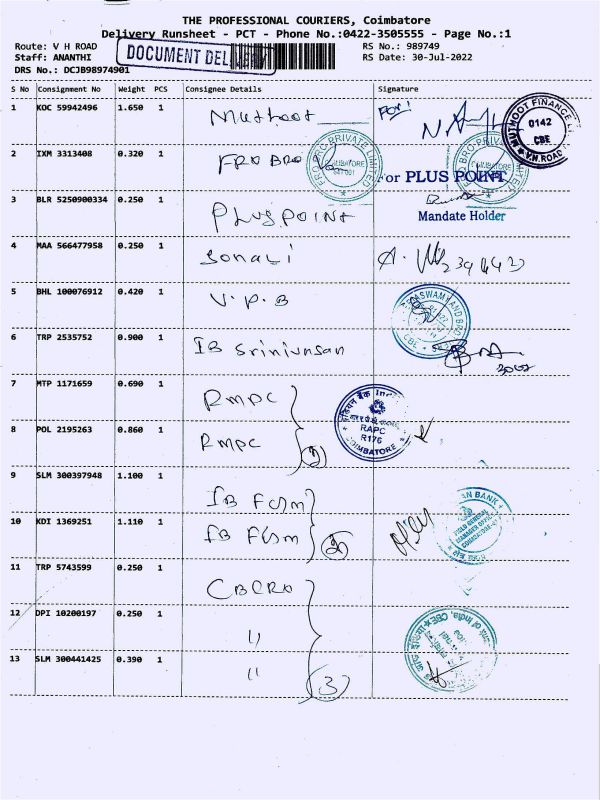 THE PROFESSIONAL COURIERS, Coimbatore
Delivery Runsheet - PCT - Phone No.:0422-3505555 - Page No.:1
Route: V H ROAD RS No.: 989749
Staff: ANANTHI RS Date: 30-Jul-2022
DOCUMENT DELIVERY
DRS No.: DCJB98974901
S No Consignment No Weight PCS Consignee Details Signature
1 KOC 59942496 1.650 1 Muthoot For!
MUTHOOT FINANCE 0142 CBE V.H. ROAD
2 IXM 3313408 0.320 1 FRO BRO
FRO BRO PRIVATE LIMITED COIMBATORE 641 001
For PLUS POINT
3 BLR 5250900334 0.250 1 PLUS POINT
Mandate Holder
4 MAA 566477958 0.250 1 Sonali
5 BHL 100076912 0.420 1 V.P.B
6 TRP 2535752 0.900 1 IB Srinivasan
7 MTP 1171659 0.690 1 RMPC
8 POL 2195263 0.860 1 RMPC
RAPC R176 COIMBATORE
9 SLM 300397948 1.100 1 IB FGM
10 KDI 1369251 1.110 1 IB FGM 2
11 TRP 5743599 0.250 1 CBCRO
12 DPI 10200197 0.250 1 "
13 SLM 300441425 0.390 1 " 3